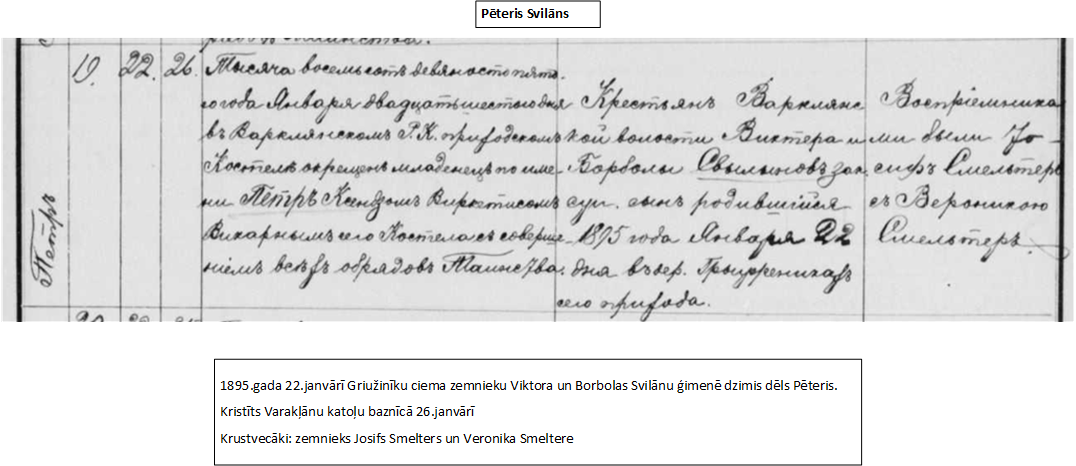 Pēteris Svilāns
Петръ
19.
22.
26.
Тысяча восемьсотъ девяностопято-
го года Января двадцатьшестого дня
въ Варклянскомъ Р. К. приходскомъ
Костелѣ окрещенъ младенецъ по име-
ни Петръ Ксендзомъ
Викарнымъ сего Костела съ соверше-
ніемъ всѣхъ обрядовъ Таинства.
Крестьянъ Варклянс-
кой волости Виктера и
Барболы Свылановъ зак.
суп. сынъ родившійся
1895 года Января 22
дня въ дер.
сего прихода.
Воспріемника-
ми были Іо-
сифъ Смельтеръ
съ Вероникою
Смельтеръ.
1895.gada 22.janvārī Griužinīku ciema zemnieku Viktora un Borbolas Svilānu ģimenē dzimis dēls Pēteris.
Kristīts Varakļānu katoļu baznīcā 26.janvārī
Krustvecāki: zemnieks Josifs Smelters un Veronika Smeltere